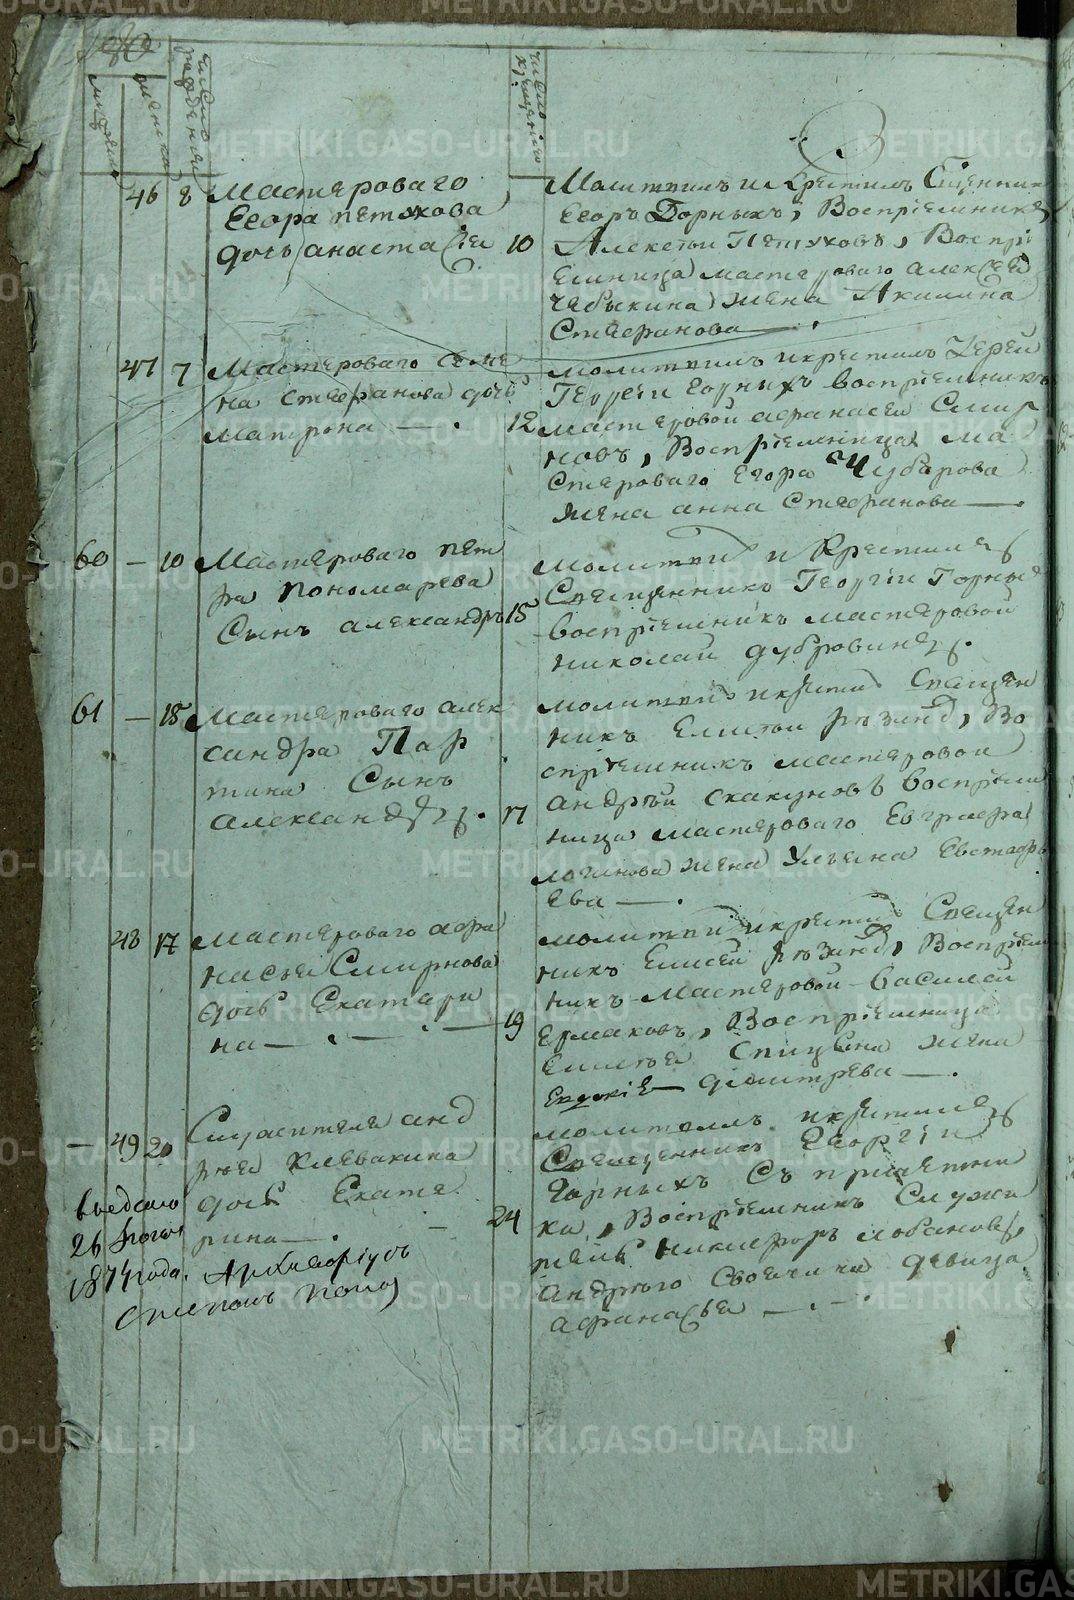 мужеска
женска
число рождения
число крещения
46 8 Мастероваго
Егора петухова
дочь анастасiя 10
Молитвилъ и крестилъ Сщенник
Егоръ Горныхъ, Воспрiемникъ
Алексеи Петуховъ, Воспрi
емница мастероваго алексея
чебыкина жена Акилина
Стефанова
47 7 Мастероваго семе
на стефанова дочь
матрона 12
молитвилъ и крестилъ Iерей
Георгiи горныхъ воспрiемникъ
мастеровой афанасеи Смир
новъ, Воспрiемница ма
стероваго Егора Чубарова
жена анна Стефанова
60 — 10 Мастероваго пет
ра пономарева
Сынъ александръ 15
молитви и крестилъ
Священникъ Георгiи Горных
воспрiемникъ мастеровой
николаи дубровинъ.
61 — 15 мастероваго алек
сандра Пар
тина Сынъ
александръ. 17
молитви и крести Священ
никъ Елисеи рѣзинъ, Во
спрiемникъ мастеровои
андрѣи скакуновъ воспрiем
ница мастероваго Евграфа
логинова жена Ульяна Евстафь
ева
48 17 мастероваго афа
насья Смирнова
дочь Екатери
на 19
молитви и крести Священ
никъ Елисеи рѣзинъ, Воспрiем
никъ мастеровой василей
Ермаковъ, Воспрiемница
Елисѣя спицына жена
Евдокiя димитрева
— 49 20 Служителя анд
рея клевакина
дочь Екате
рина 24
молитвилъ и крестилъ
Священникъ Егоргiи
Горныхъ Съ причетни
ки, Воспрiемникъ Служи
тель никифоръ лобановъ,
андрѣю своячина девица
афанасья
26
1874 года. Архиварiусъ
Степанъ Попов